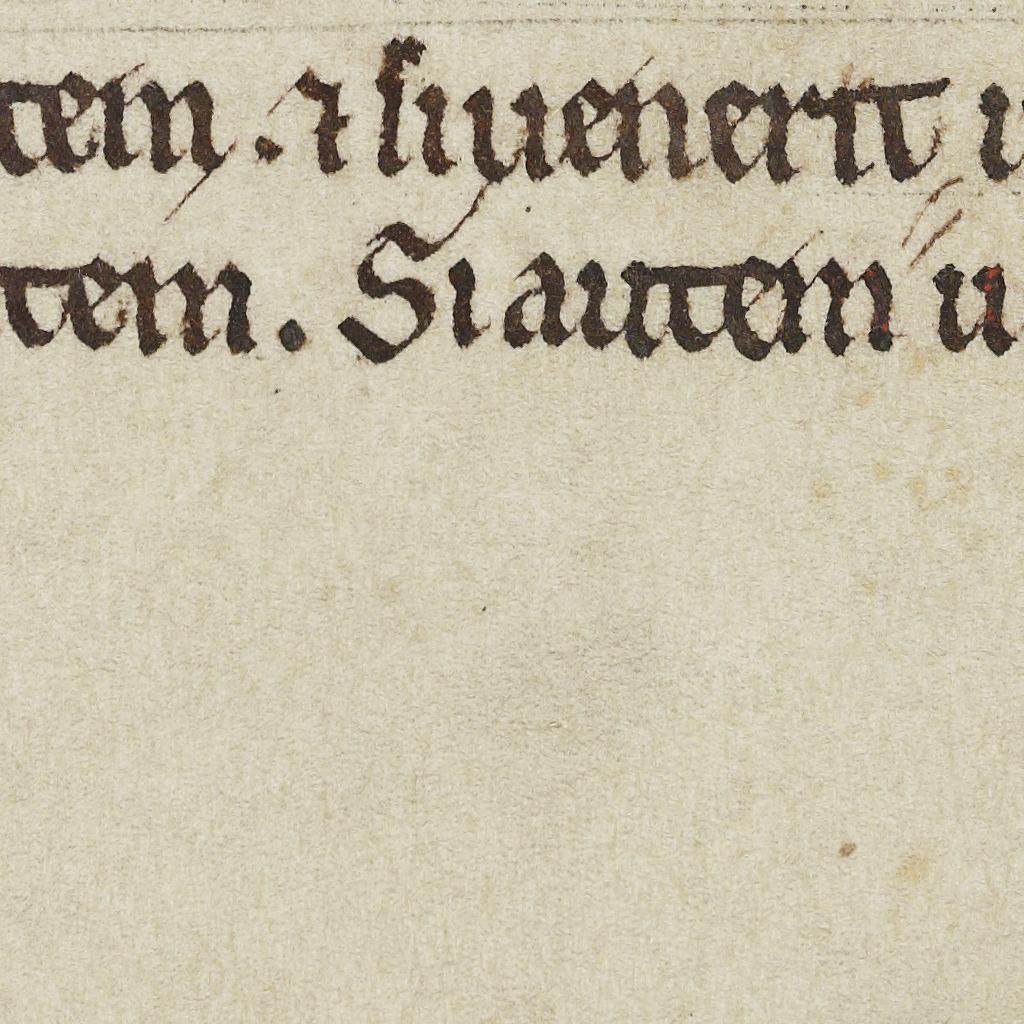 tem . ⁊ si uenerit u
tem . Si autem u